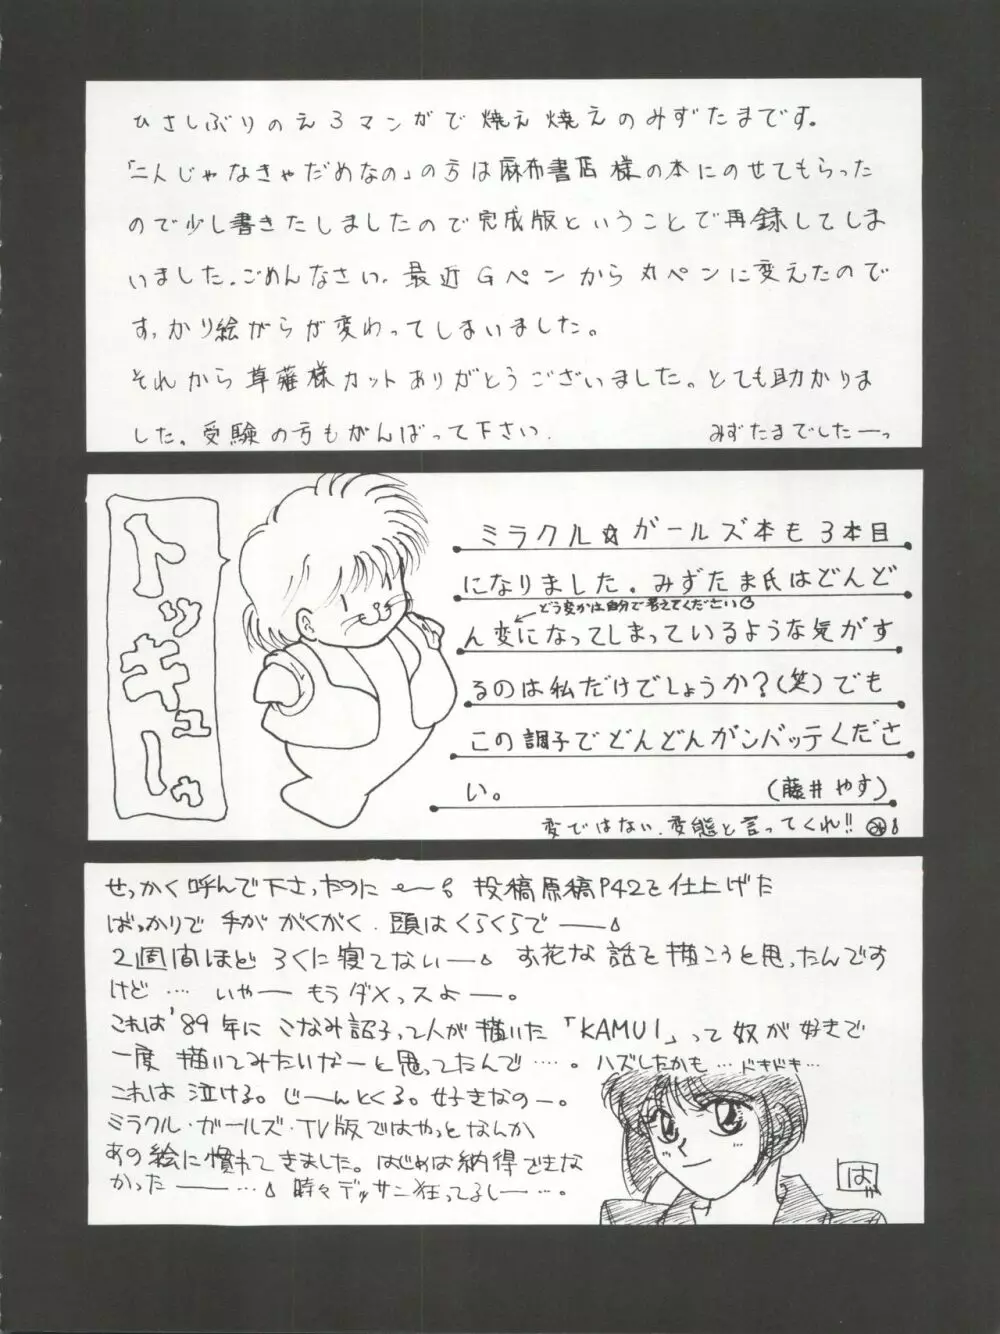 ひさしぶりのえろマンガで燃え燃えのみずたまです。
「二人じゃなきゃだめなの」の方は麻布書店様の本にのせてもらった
ので少し書きたしましたので完成版ということで再録してしま
いました。ごめんなさい。最近Gペンから丸ペンに変えたので
すっかり絵がらが変わってしまいました。
それから草薙様カットありがとうございました。とても助かりま
した。受験の方もがんばって下さい。
みずたまでしたーっ
トッキューゥ
ミラクル☆ガールズ本も3本目
になりました。みずたま氏はどんど
どう変かは自分で考えてください
ん変になってしまっているような気がす
るのは私だけでしょうか?(笑)でも
この調子でどんどんガンバッテくださ
い。
(藤井やす)
変ではない、変態と言ってくれ!!
せっかく呼んで下さったのに 投稿原稿P42を仕上げた
ばっかりで手ががくがく、頭はくらくらで――
2週間ほどろくに寝てないー お花な話を描こうと思ったんです
けど…いやーもうダメっスよー。
これは'89年にこなみ詔子って人が描いた「KAMUI」って奴が好きで
一度描いてみたいなーと思ってたんで…。ハズしたかも…ドキドキ…
これは泣ける。じーんとくる。好きなのー。
ミラクル・ガールズ・TV版ではやっとなんか
あの絵に慣れてきました。はじめは納得できな
かった――… 時々デッサン狂ってるしー…。
ば